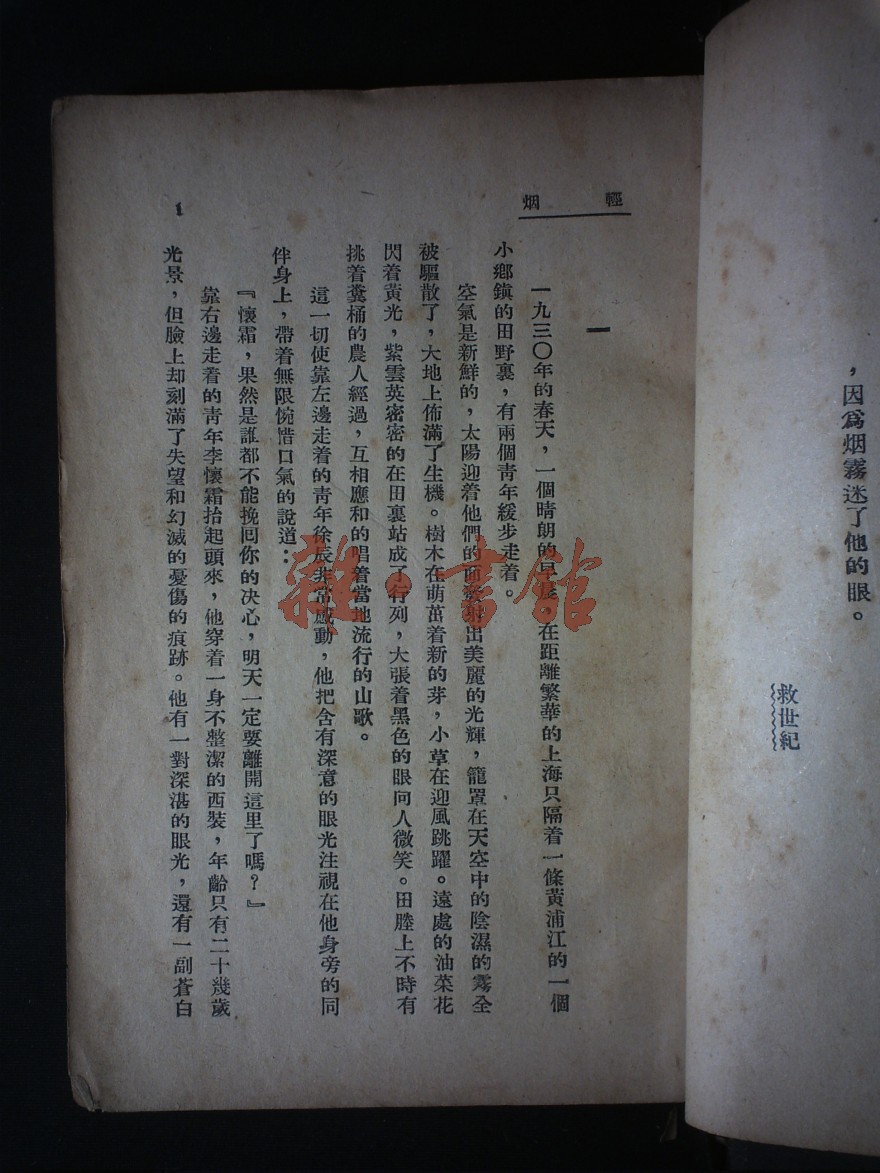 ，因爲烟霧迷了他的眼。
救世紀
輕烟
一
一九三〇年的春天，一個晴朗的早晨，在距離繁華的上海只隔着一條黃浦江的一個
小鄉鎮的田野裏，有兩個靑年緩步走着。
空氣是新鮮的，太陽迎着他們的面發射出美麗的光輝，籠罩在天空中的陰濕的霧全
被驅散了，大地上佈滿了生機。樹木在萌茁着新的芽，小草在迎風跳躍。遠處的油菜花
閃着黃光，紫雲英密密的在田裏站成了行列，大張着黑色的眼向人微笑。田塍上不時有
挑着糞桶的農人經過，互相應和的唱着當地流行的山歌。
這一切使靠左邊走着的靑年徐辰非常感動，他把含有深意的眼光注視在他身旁的同
伴身上，帶着無限惋惜口氣的說道：
『懷霜，果然是誰都不能挽囘你的决心，明天一定要離開這里了嗎？』
靠右邊走着的靑年李懷霜抬起頭來，他穿着一身不整潔的西裝，年齡只有二十幾歲
光景，但臉上却刻滿了失望和幻滅的憂傷的痕跡。他有一對深湛的眼光，還有一副蒼白
1
雜·書館